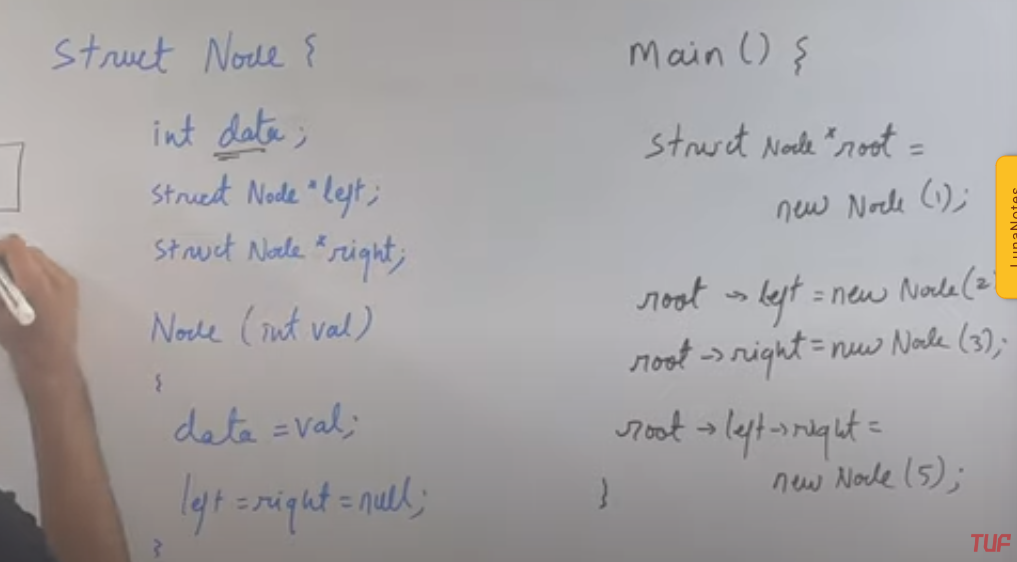 Struct Node {
int data;
struct Node *left;
struct Node *right;
Node (int val)
{
data = val;
left = right = null;
}
Main () {
struct Node *root =
new Node (1);
root → left = new Node (2
root → right = new Node (3);
root → left → right =
new Node (5);
}
LunaNotes
TUF